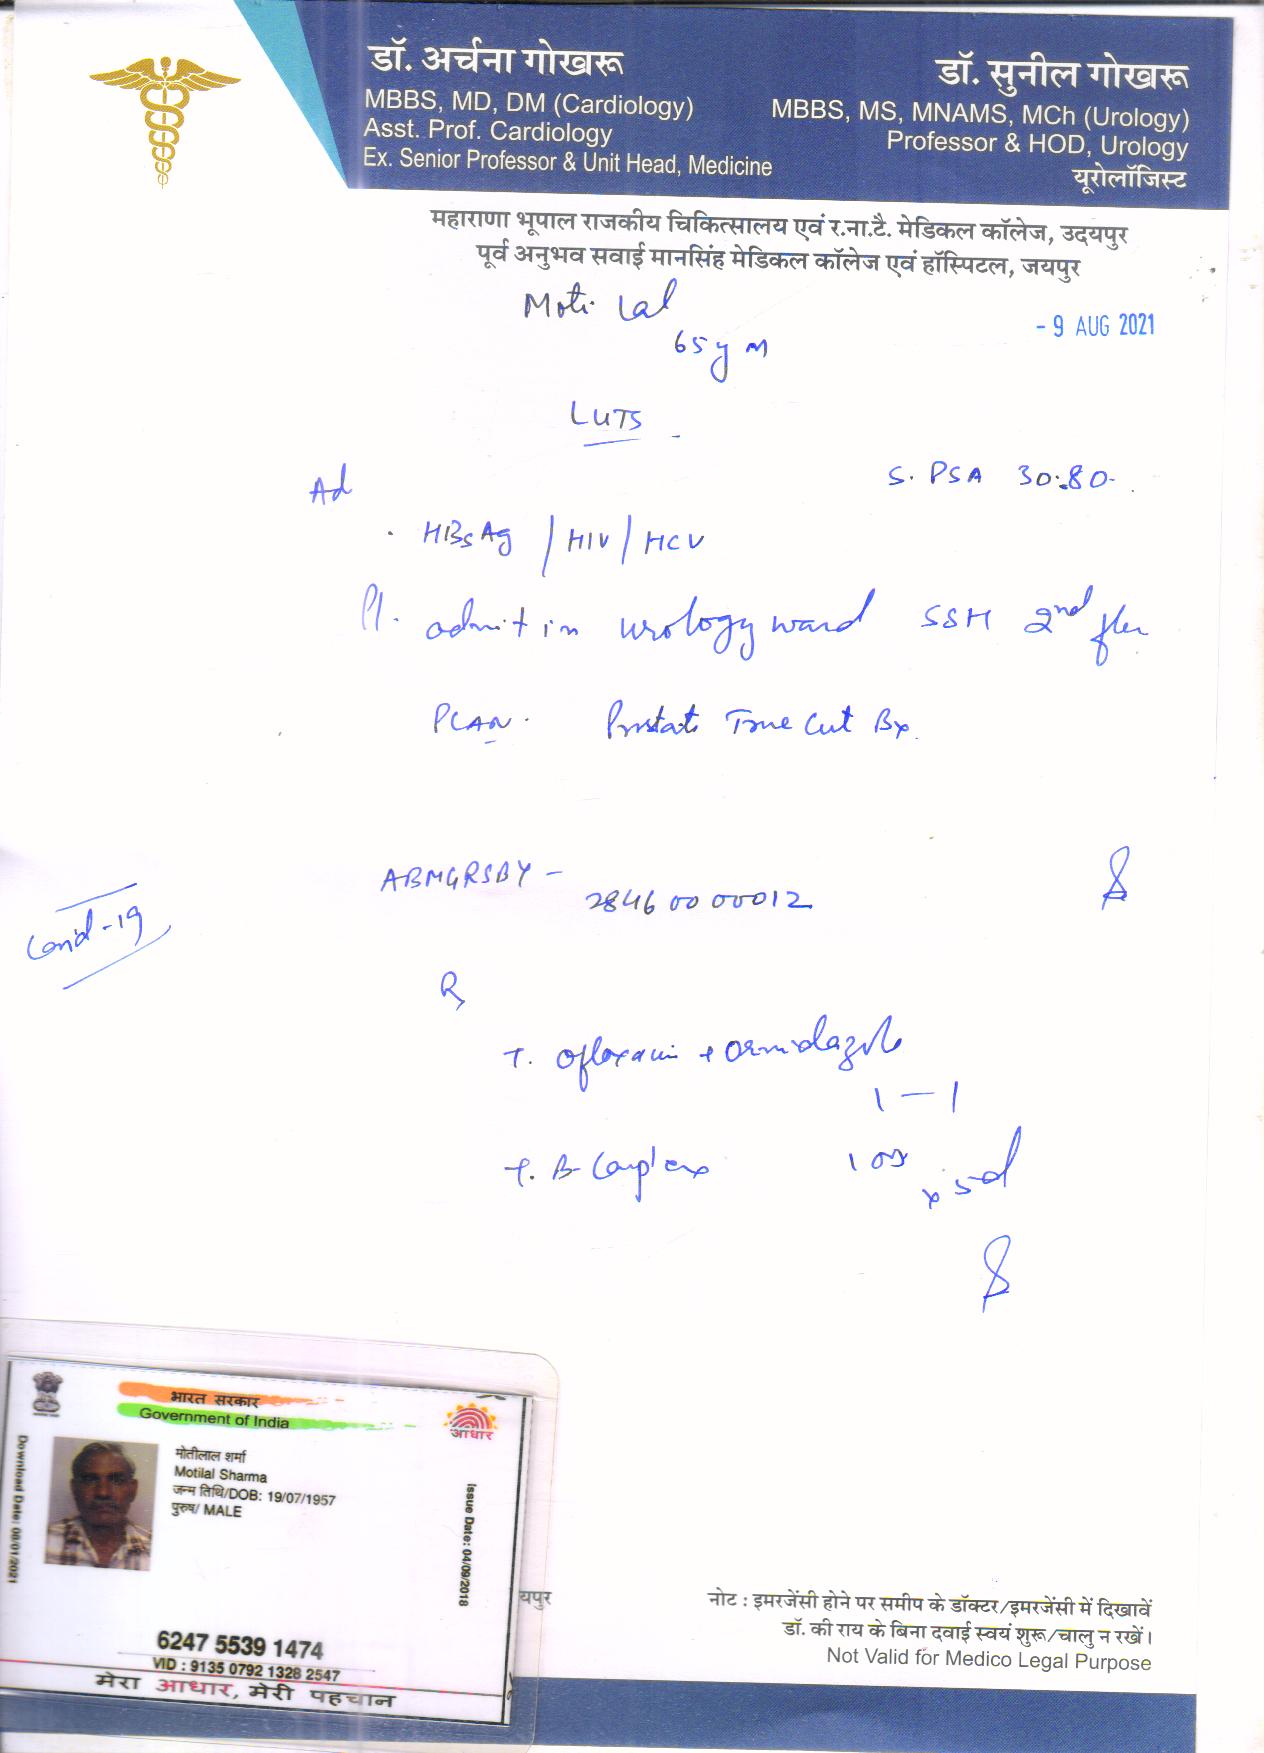 डॉ. अर्चना गोखरू
MBBS, MD, DM (Cardiology)
Asst. Prof. Cardiology
Ex. Senior Professor & Unit Head, Medicine
डॉ. सुनील गोखरू
MBBS, MS, MNAMS, MCh (Urology)
Professor & HOD, Urology
यूरोलॉजिस्ट
महाराणा भूपाल राजकीय चिकित्सालय एवं र.ना.टै. मेडिकल कॉलेज, उदयपुर
पूर्व अनुभव सवाई मानसिंह मेडिकल कॉलेज एवं हॉस्पिटल, जयपुर
Moti Lal
- 9 AUG 2021
65 y M
LUTS
S. PSA 30.80
Ad
HBsAg / HIV / HCV
Pl. admit in urology ward SSH 2nd
PLAN. True Cut Bx.
ABMGRSBY -
2846 00 00012
Covid-19
Rx
T. + 
1 - 1
T. B-Complex 1 OD
x 5d
भारत सरकार
Government of India
आधार
मोतीलाल शर्मा
Motilal Sharma
जन्म तिथि/DOB: 19/07/1957
पुरुष/ MALE
Download Date: 08/01/2021
Issue Date: 04/09/2018
6247 5539 1474
VID : 9135 0792 1328 2547
मेरा आधार, मेरी पहचान
यपुर
नोट : इमरजेंसी होने पर समीप के डॉक्टर/इमरजेंसी में दिखावें
डॉ. की राय के बिना दवाई स्वयं शुरू/चालु न रखें।
Not Valid for Medico Legal Purpose